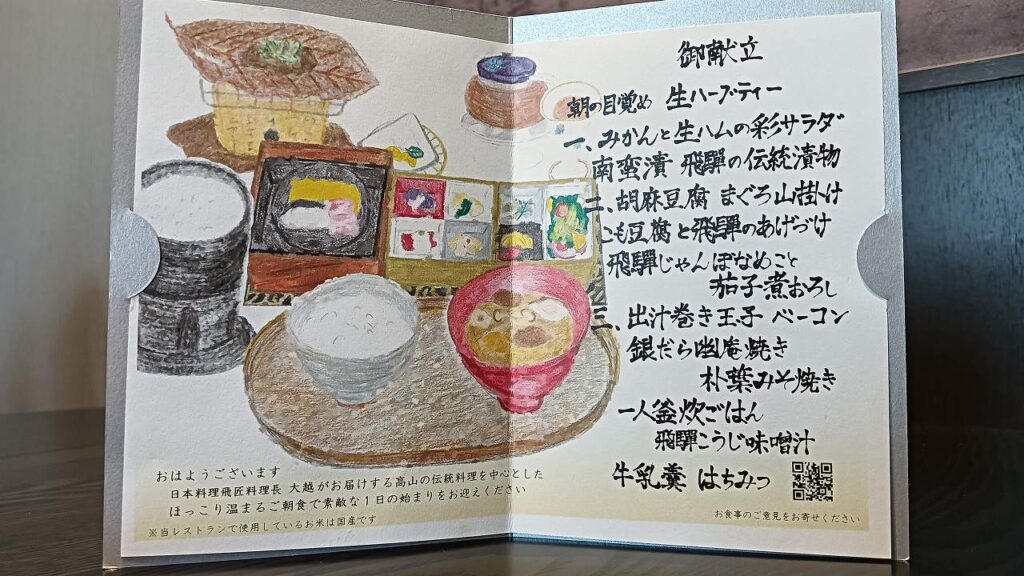 おはようございます
日本料理飛匠料理長 大越がお届けする高山の伝統料理を中心とした
ほっこり温まるご朝食で素敵な1日の始まりをお迎えください
※当レストランで使用しているお米は国産です
御献立
朝の目覚め 生ハーブティー
一、みかんと生ハムの彩サラダ
南蛮漬 飛騨の伝統漬物
二、胡麻豆腐 まぐろ山掛け
こも豆腐と飛騨のあげづけ
飛騨じゃんぼなめこと
茄子煮おろし
三、出汁巻き玉子 ベーコン
銀だら幽庵焼き
朴葉みそ焼き
一人釜炊ごはん
飛騨こうじ味噌汁
牛乳羹 はちみつ
お食事のご意見をお寄せください